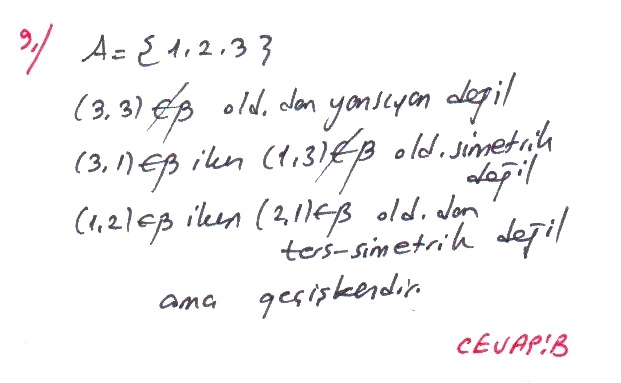 9,/ A = {1, 2, 3}
(3,3)∉β old. dan yansıyan değil
(3,1)∈β iken (1,3)∉β old. simetrik
değil
(1,2)∈β iken (2,1)∈β old. dan
ters-simetrik değil
ama geçişkendir.
CEVAP:B